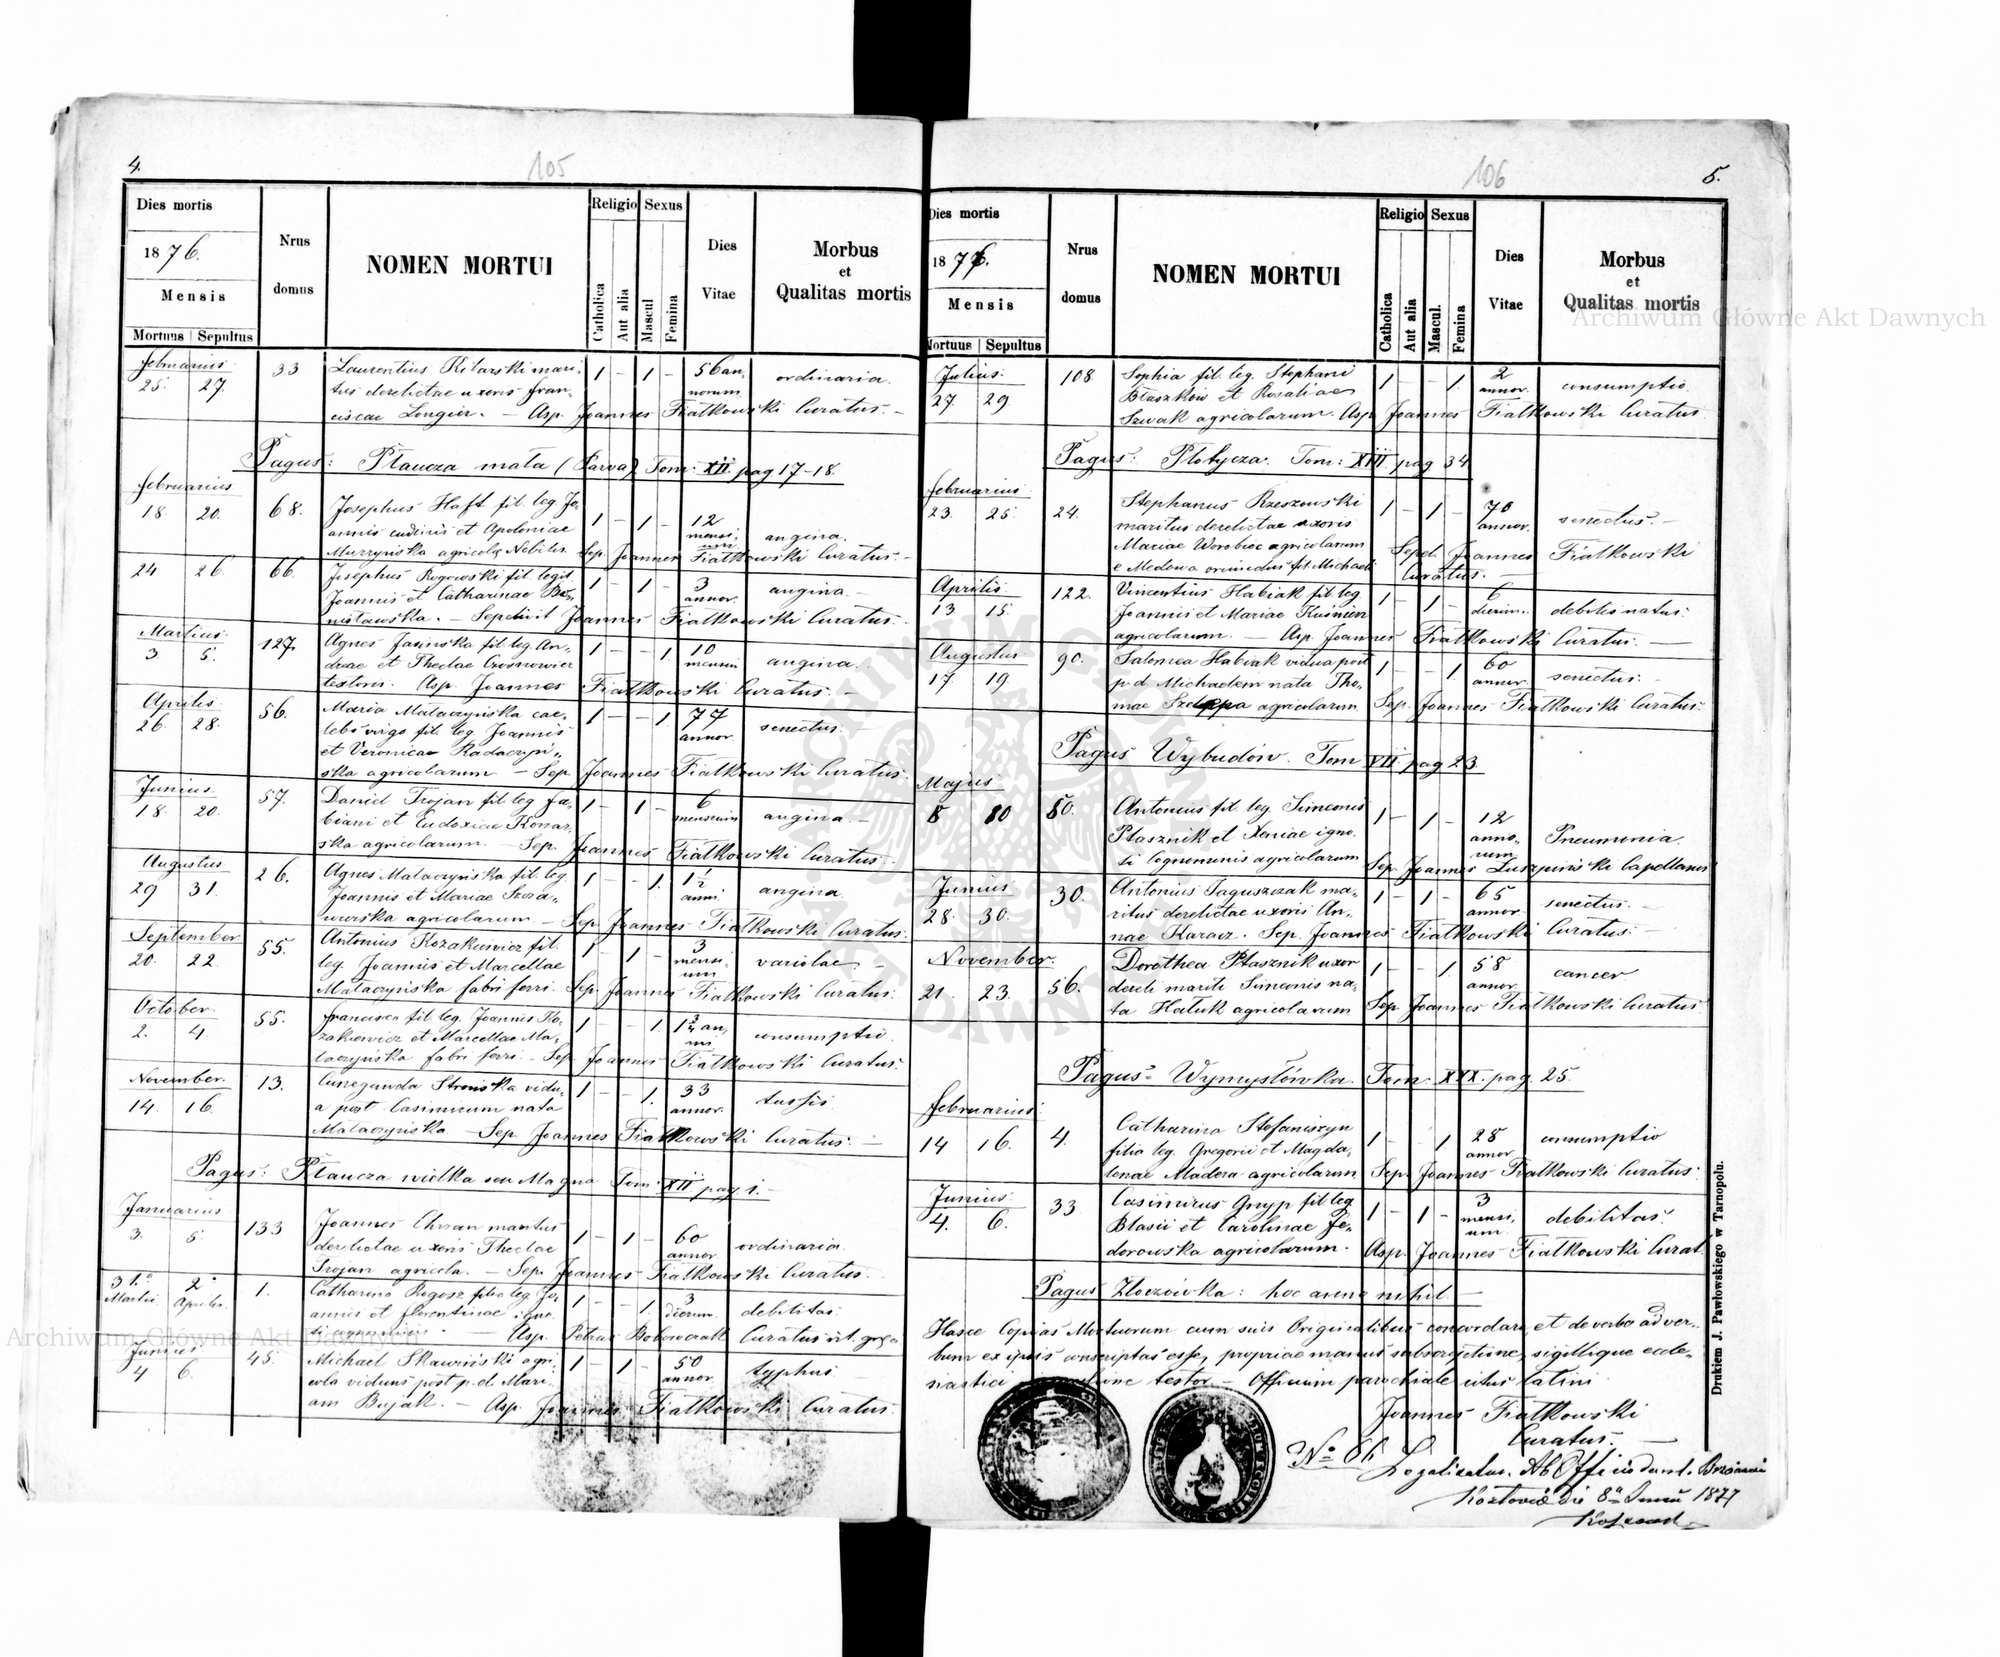 4.
105
Dies mortis
1876.
Mensis
Mortuus | Sepultus
Nrus domus
NOMEN MORTUI
Religio
Catholica
Aut alia
Sexus
Mascul
Femina
Dies Vitae
Morbus
et
Qualitas mortis
februarius
25. 27 33 Laurentius Kilarski mari- 1 – 1 – 56 an- ordinaria.
tus derelictae uxoris fran- norum
ciscae Longier. – Asp. Joannes Fiatkowski Curatus. –
Pagus: Płaucza mała (Parva) Tom: XII. pag 17-18.
februarius
18. 20. 68. Josephus Haft fil. leg. Jo- 1 – 1 – 12 angina.
annis et Apoloniae mensi-
um
Murzyńska agricola Nobilis. Sep. Joannes Fiatkowski Curatus. –
24 26 66. Josephus Rogowski fil. legit. 1 – 1 – 3 angina. –
Joannis et Catharinae annor.
Sepelivit Joannes Fiatkowski Curatus. –
Martius.
3 5. 127. Agnes Jasińska fil. leg. An- 1 – – 1. 10 angina.
dreae et Theclae mensium
textoris. Asp. Joannes Fiatkowski Curatus. –
Aprilis
26 28. 56. Maria Małaczyńska cae- 1 – – 1 77 senectus. –
lebs virgo fil. leg. Joannis annor.
et Veronicae Radaczyń-
ska agricolarum – Sep. Joannes Fiatkowski Curatus.
Junius.
18. 20. 57. Daniel Trojan fil. leg. Fa- 1 – 1 – 6 angina. –
biani et Eudoxiae Konar- mensium
ska agricolarum. – Sep. Joannes Fiatkowski Curatus. –
Augustus
29 31. 26. Agnes Małaczyńska fil. leg. 1 – – 1. 1½ angina.
Joannis et Mariae anni.
agricolarum. – Sep. Joannes Fiatkowski Curatus.
September
20. 22. 55. Antonius Kozakiewicz fil. 1 – 1 – 3 variolae. –
leg. Joannis et Marcellae mensi-
um
Małaczyńska fabri ferri. Sep. Joannes Fiatkowski Curatus.
October.
2. 4. 55. francisca fil. leg. Joannis Ko- 1 – 1. an- consumptio.
zakiewicz et Marcellae Ma- ni
łaczyńska fabri ferri. – Sep. Joannes Fiatkowski Curatus.
November.
14. 16. 13. Cunegunda Strońska vidu- 1 – – 1. 33 tussis.
a post Casimirum nata annor.
Małaczyńska. – Sep. Joannes Fiatkowski Curatus. –
Pagus: Płaucza wielka seu Magna Tom: XII pag 1. –
Januarius
3. 5. 133 Joannes Chrzan maritus 1 – 1 – 60 ordinaria.
derelictae uxoris Theclae annor
Trojan agricola. – Sep. Joannes Fiatkowski Curatus.
31a 2a 1. Catharina Rogosz filia leg. Jo- 1 – – 1. 3 debilitas.
Martii Aprilis. annis et florentinae igno- dierum.
ti cognominis. – Asp. Petrus Curatus rit. grec.
Junius.
4 6. 45. Michael Skawiński agri- 1 – 1 – 50 typhus.
cola viduus post p. d. Mari- annor.
am Bujak. – Asp. Joannes Fiatkowski Curatus.
106
5.
Dies mortis
1876.
Mensis
Mortuus | Sepultus
Nrus domus
NOMEN MORTUI
Religio
Catholica
Aut alia
Sexus
Mascul.
Femina
Dies Vitae
Morbus
et
Qualitas mortis
Julius.
27. 29. 108. Sophia fil. leg. Stephani 1 – – 1. 2 consumptio.
Błaszków et Rosaliae annor.
Szwak agricolarum. Asp. Joannes Fiatkowski Curatus.
Pagus: Płotycza. Tom: XIII. pag 34
februarius
23. 25. 24. Stephanus Rzeszowski 1 – 1 – 70 senectus. –
maritus derelictae uxoris annor.
Mariae Worobiec agricolarum Sepel. Joannes Fiatkowski
e Medowa oriundus fil. Michaeli Curatus. –
Aprilis.
13 15. 122. Vincentius Habiak fil. leg. 1 – 1 – 6 debilis natus.
Joannis et Mariae Kuśnierz dierum.
agricolarum. – Asp. Joannes Fiatkowski Curatus. –
Augustus
17 19. 90. Salomea Habiak vidua post 1 – – 1. 60 senectus. –
p. d. Michaelem nata Tho- annor.
mae agricolarum Sep. Joannes Fiatkowski Curatus.
Pagus Wybudów. Tom VII pag 23.
Majus
8 10 50. Antonius fil. leg. Simeonis 1 – 1 – 12 Pneumonia.
Ptasznik et Xeniae igno- anno-
rum
ti Cognominis agricolarum Sep. Joannes Capellanus
Junius
28. 30. 30. Antonius Taguszczak ma- 1 – 1 – 65 senectus. –
ritus derelictae uxoris An- annor
nae Karacz. Sep. Joannes Fiatkowski Curatus. –
November.
21. 23. 56. Dorothea Ptasznik uxor 1 – – 1 58 cancer.
dereli mariti Simeonis na- annor.
ta Hałuk agricolarum Sep. Joannes Fiatkowski Curatus.
Pagus: Wymysłówka. Tom. XIX. pag. 25.
februarius.
14 16. 4. Catharina Stefaniszyn 1 – – 1. 28 consumptio
filia leg. Gregorii et Magda- annor
lenae Madera agricolarum. Sep. Joannes Fiatkowski Curatus.
Junius.
4. 6. 33. Casimirus Gnyp fil. leg. 1 – 1 – 3 debilitas.
Blasii et Carolinae Fe- mensi-
um.
dorowska agricolarum. Asp. Joannes Fiatkowski Curat.
Pagus Złoczówka: hoc anno nihil. –
Hasce Copias Mortuorum cum suis Originalibus concordare, et de verbo ad ver-
bum ex ipsis conscriptas esse, propriae manus subscriptione, sigillique eccle-
siastici testor. – Officium parochiale ritus latini
Joannes Fiatkowski
Curatus. –
No 86 Legalisatur. Ab Officio
Kozłowie die 8a Junii 1877
Drukiem J. Pawłowskiego w Tarnopolu.
Archiwum Główne Akt Dawnych
Archiwum Główne Akt Dawnych